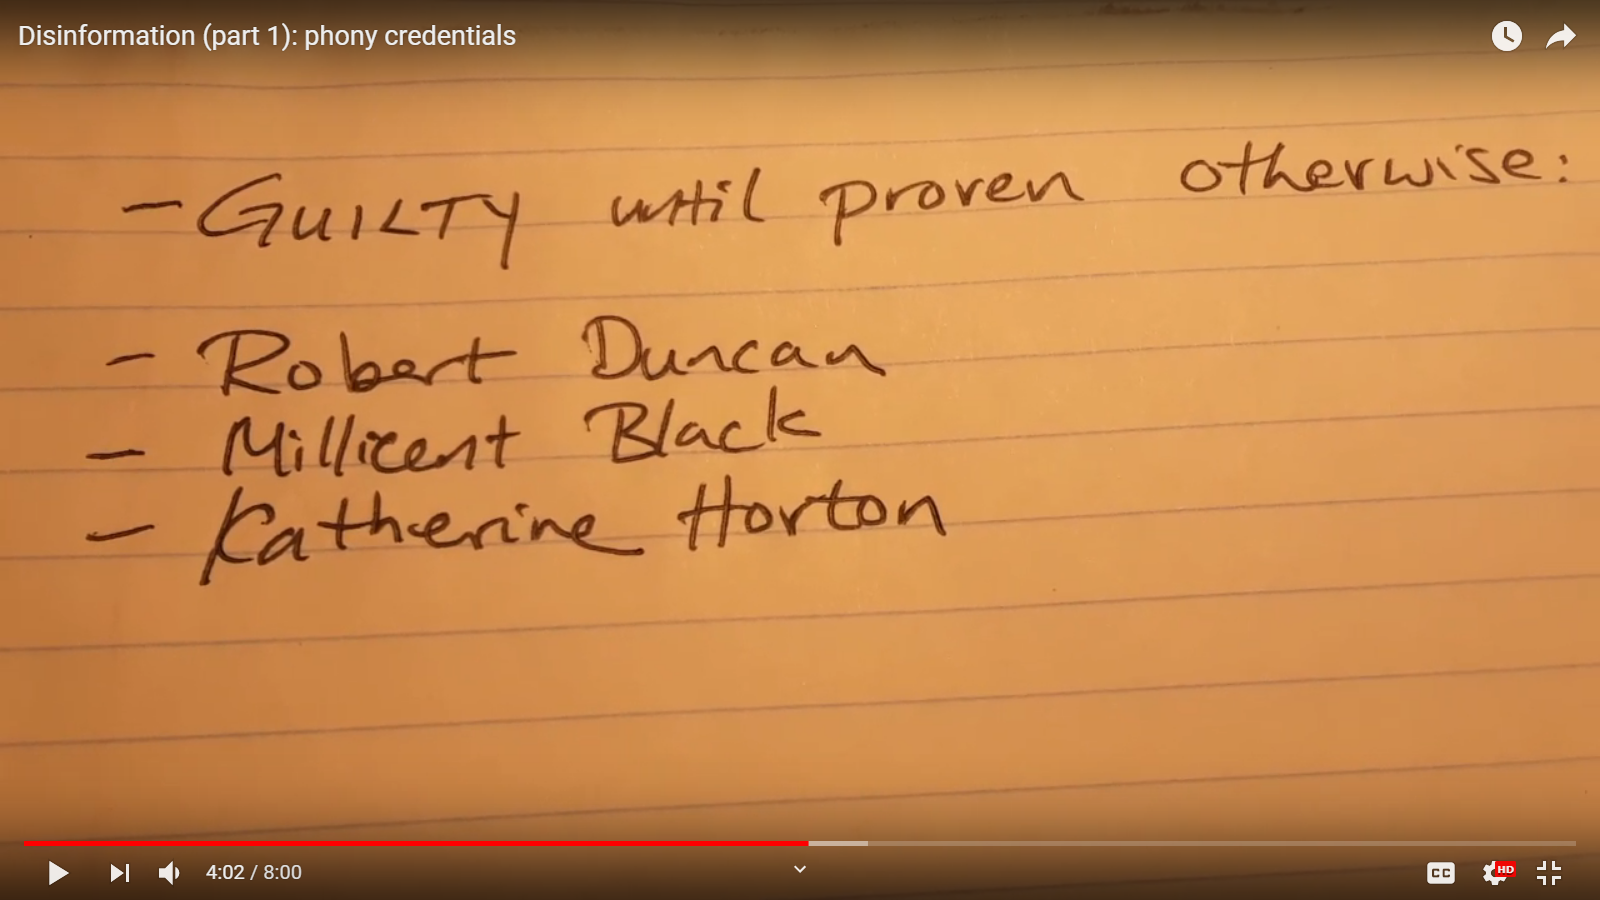 Disinformation (part 1): phony credentials
- GUILTY until proven otherwise:
- Robert Duncan
- Millicent Black
- Katherine Horton
4:02 / 8:00
CC
HD